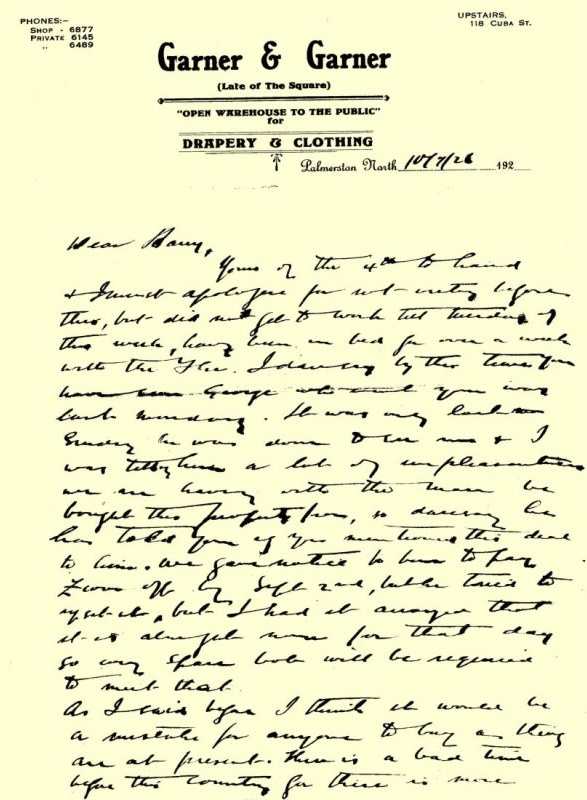 PHONES:-
SHOP - 6877
PRIVATE 6145
" 6489
UPSTAIRS,
118 CUBA ST.
Garner & Garner
(Late of The Square)
"OPEN WAREHOUSE TO THE PUBLIC"
for
DRAPERY & CLOTHING
Palmerston North 10/7/26 192
Dear Harry,
Yours of the 4th to hand
& I must apologise for not writing before
this, but did not get to work till Tuesday of
this week, having been in bed for over a week
with the Flu. I daresay by this time you
have seen George who went your way
last Monday. It was only last
Sunday he was down to see me & I
was telling him a lot of unpleasantness
we are having with the man he
bought this property from, so daresay he
has told you if you mentioned this deal
to him. We gave notice to him to pay
off by Sept 2nd, but he tried to
upset it, but I had it arranged that
it is alright now for that day
so any spare bob will be required
to meet that.
As I said before I think it would be
a mistake for anyone to buy as things
are at present. There is a bad time
before this country for there is more